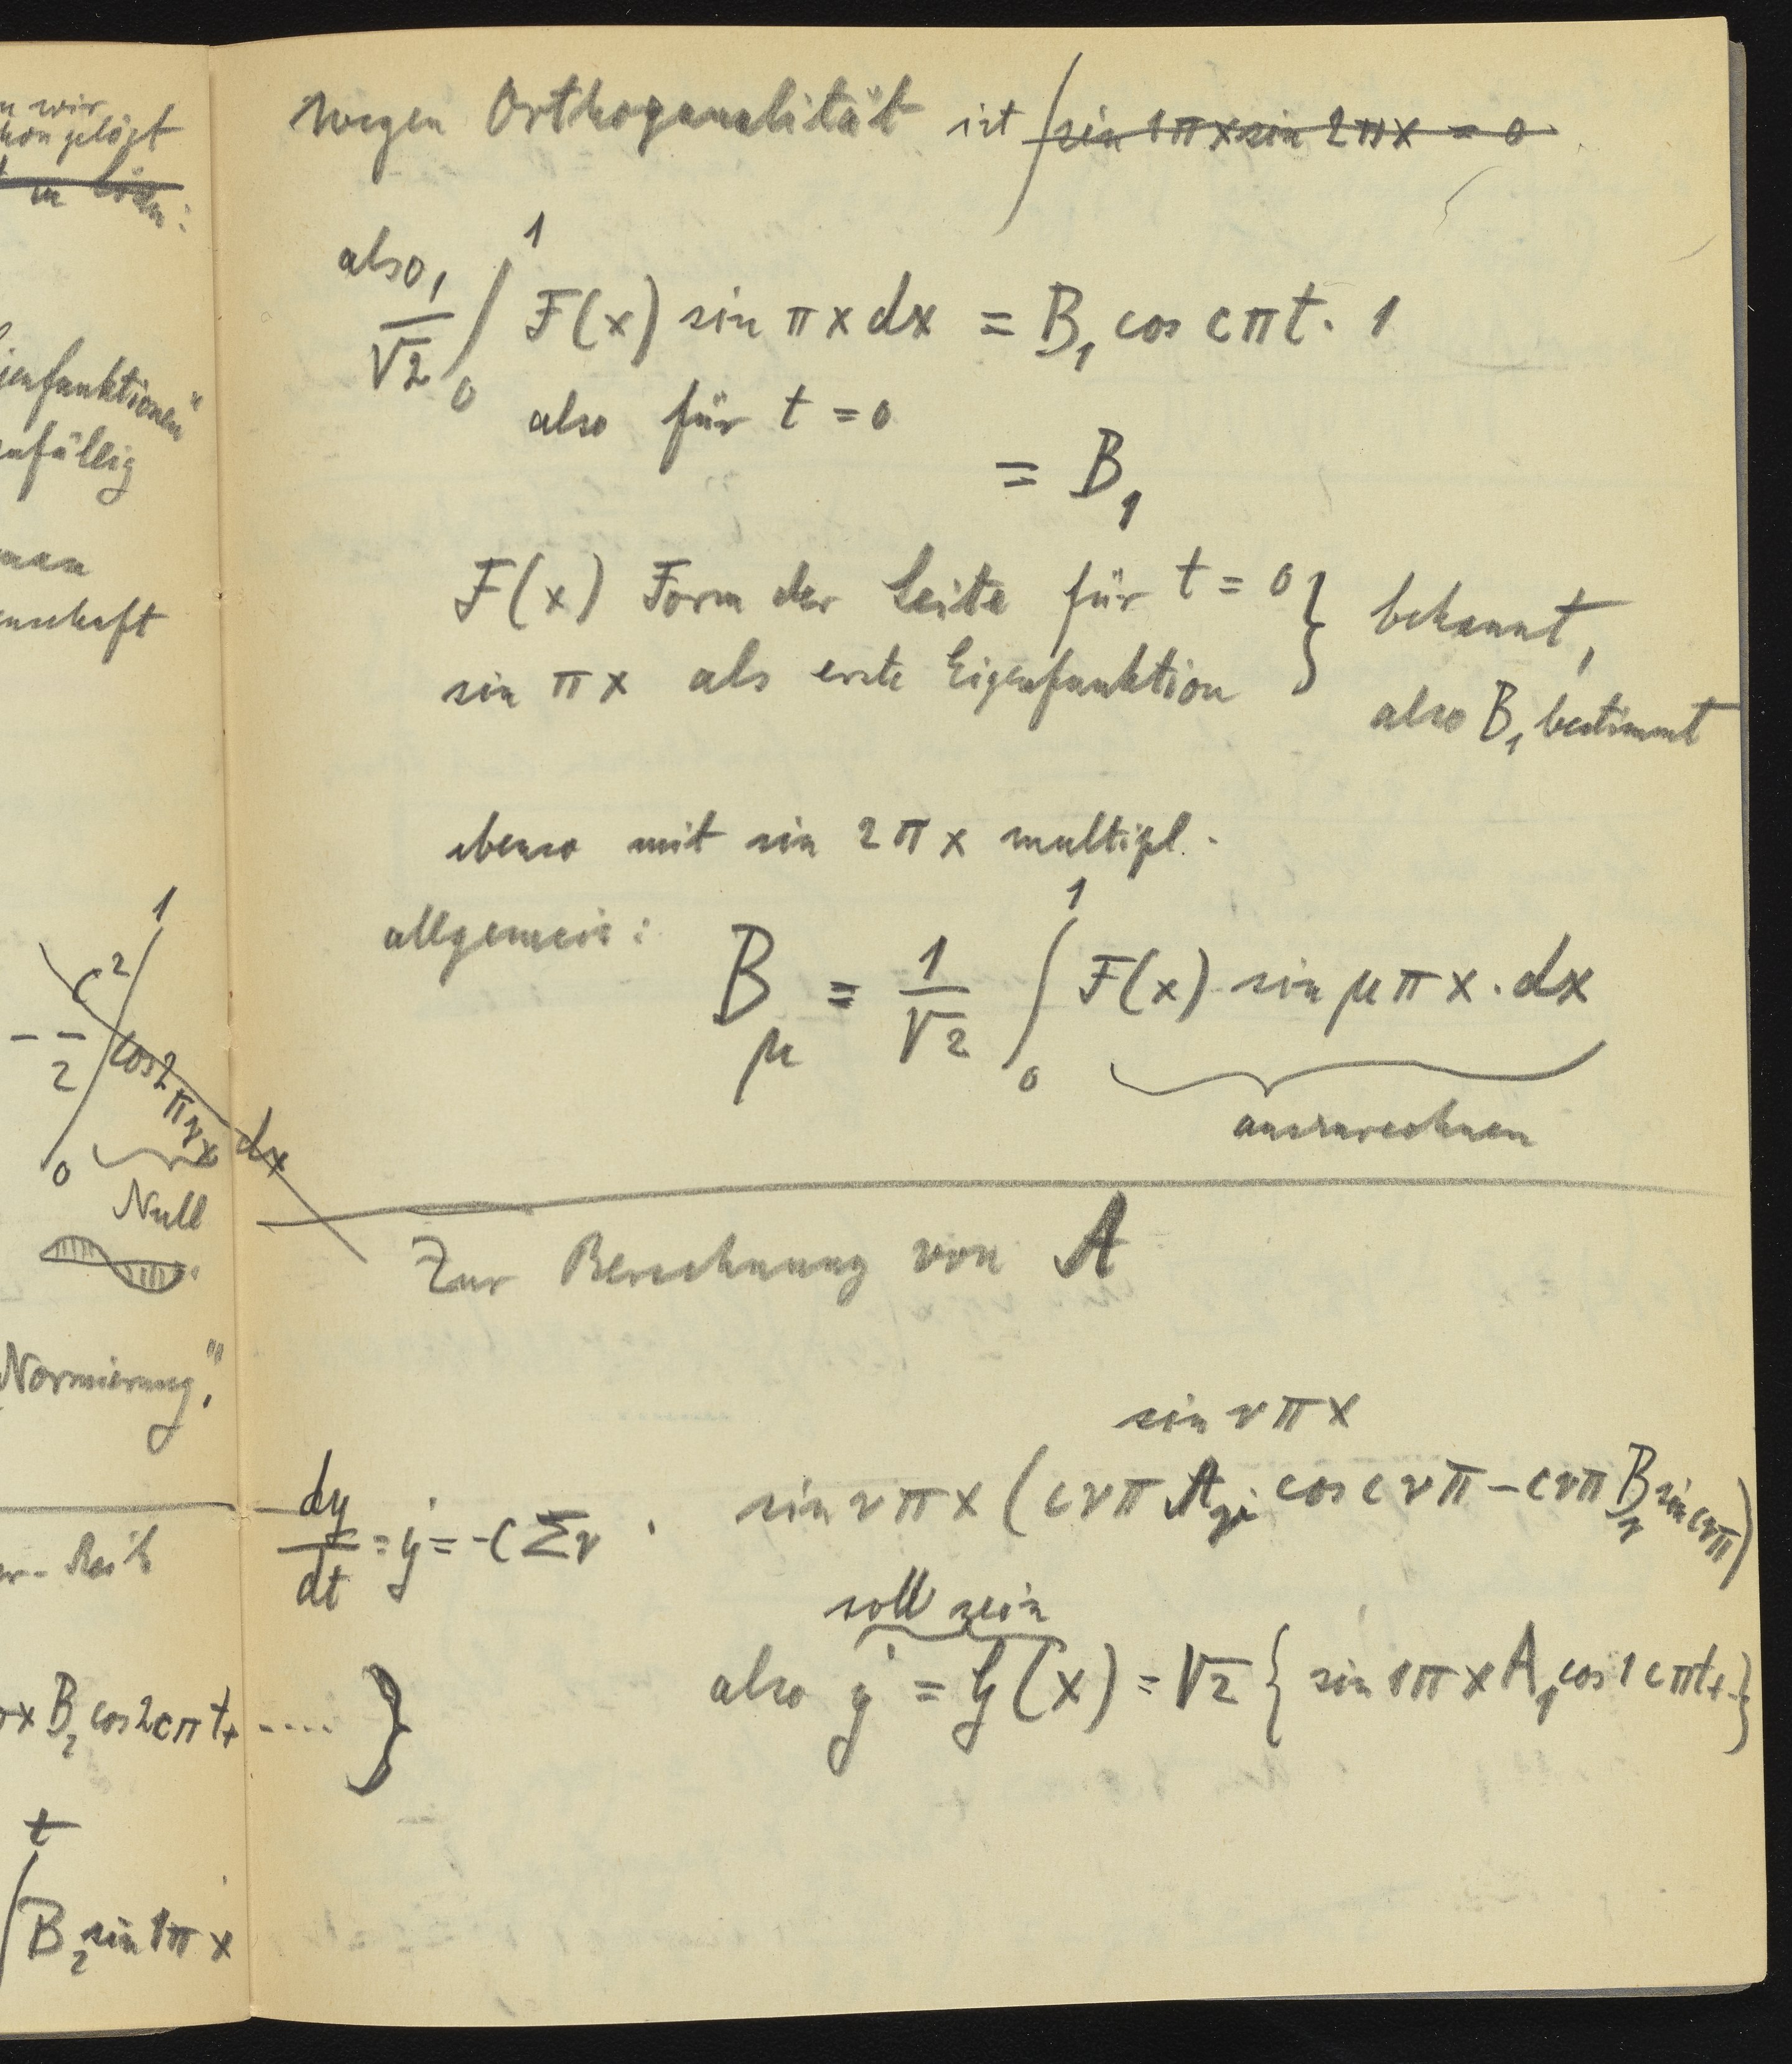 n wir
hon gelöst
in
enfunktionen"
nfällig
man
enschaft
1
c²
- –
2
∫ cos 2πνx dx
0
Null
Normierung,"
x B₂ cos 2cπt + ....}
t
∫ B₂ sin 1πx
wegen Orthogonalität ist ∫ sin 1πx sin 2πx = 0
also,
1/√2 ∫₀¹ F(x) sin πx dx = B₁ cos cπt · 1
also für t = 0
= B₁
F(x) Form der Seite für t = 0 } bekannt,
sin πx als erste Eigenfunktion } also B₁ bestimmt
ebenso mit sin 2πx multipl.
allgemein: B_μ = 1/√2 ∫₀¹ F(x) sin μπx · dx
auszurechnen
Zur Berechnung von A
sin νπx
dy/dt = ẏ = -c Σν · sin νπx (cνπ A_ν cos cνπ - cνπ B_ν sin cνπ)
soll sein
also ẏ = G(x) = √2 { sin 1πx A₁ cos 1cπt + }